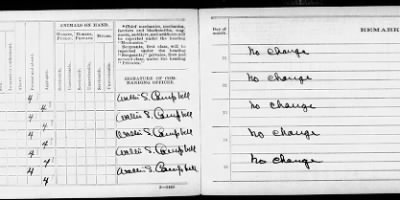 ANIMALS ON HAND.
HORSES, PUBLIC.
HORSES, PRIVATE.
MULES.
Serviceable.
Unserviceable.
Serviceable.
Unserviceable.
Serviceable.
Unserviceable.
Present and absent.
Aggregate.
¹Chief mechanics, mechanics,
farriers and blacksmiths, wag-
oners, saddlers, and artificers will be
reported under the heading
"Mechanics."
Sergeants, first class, will be
reported under the heading
"Sergeants;" privates, first and
second class, under the heading
"Privates."
SIGNATURE OF COM-
MANDING OFFICER.
4
4 Wallis S. Campbell
4
4 Wallis S. Campbell
4
4 Wallis S. Campbell
4
4 Wallis S. Campbell
4
4 Wallis S. Campbell
Day of
month.
REMARK
No change
No change
No change
No change
No change